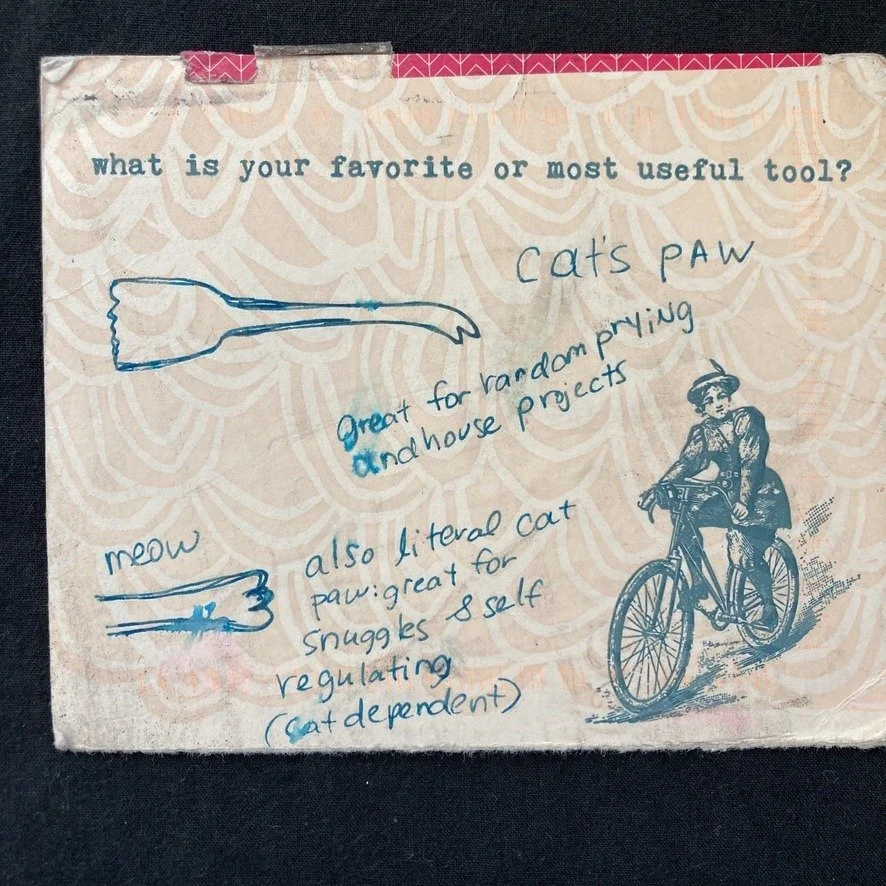 what is your favorite or most useful tool?
Cat's PAW
great for random prying
and house projects
meow
also literal cat
paw: great for
snuggles & self
regulating
(cat dependent)